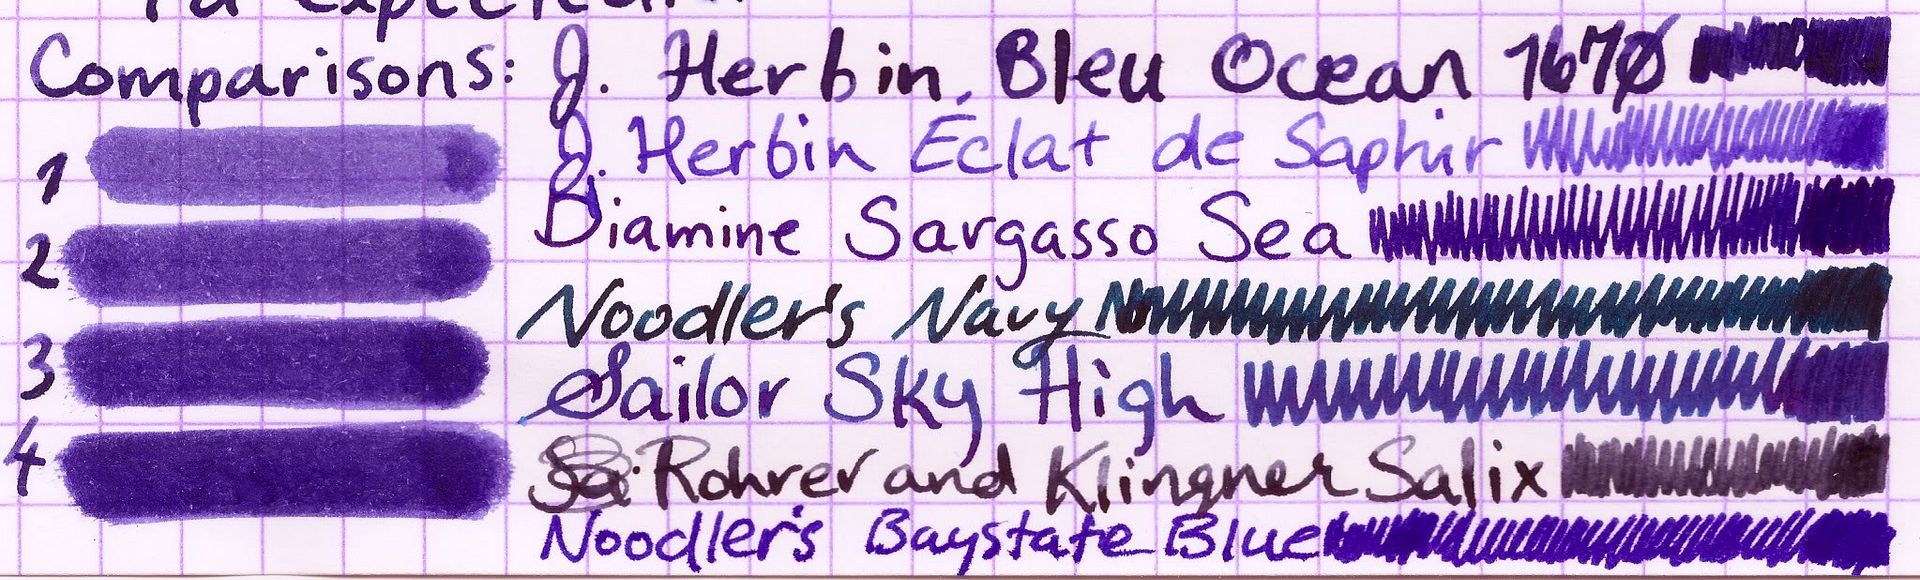 Comparisons:
J. Herbin Bleu Ocean 1670
J. Herbin Éclat de Saphir
Diamine Sargasso Sea
Noodler's Navy
Sailor Sky High
Rohrer and Klingner Salix
Noodler's Baystate Blue
1
2
3
4